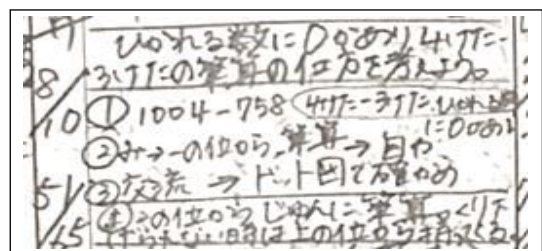 ひかれる数に0があり4けた-
3けたの筆算の仕方を考えよう。
8/10 ① 1004-758 4けた-3けた、ひかれる数
に0あり
② み→一の位から、筆算→自力
③ 交流 → ドット図で確かめ
5/15 ④ 一の位からじゅんに筆算。くり下
げられない時は上の位から